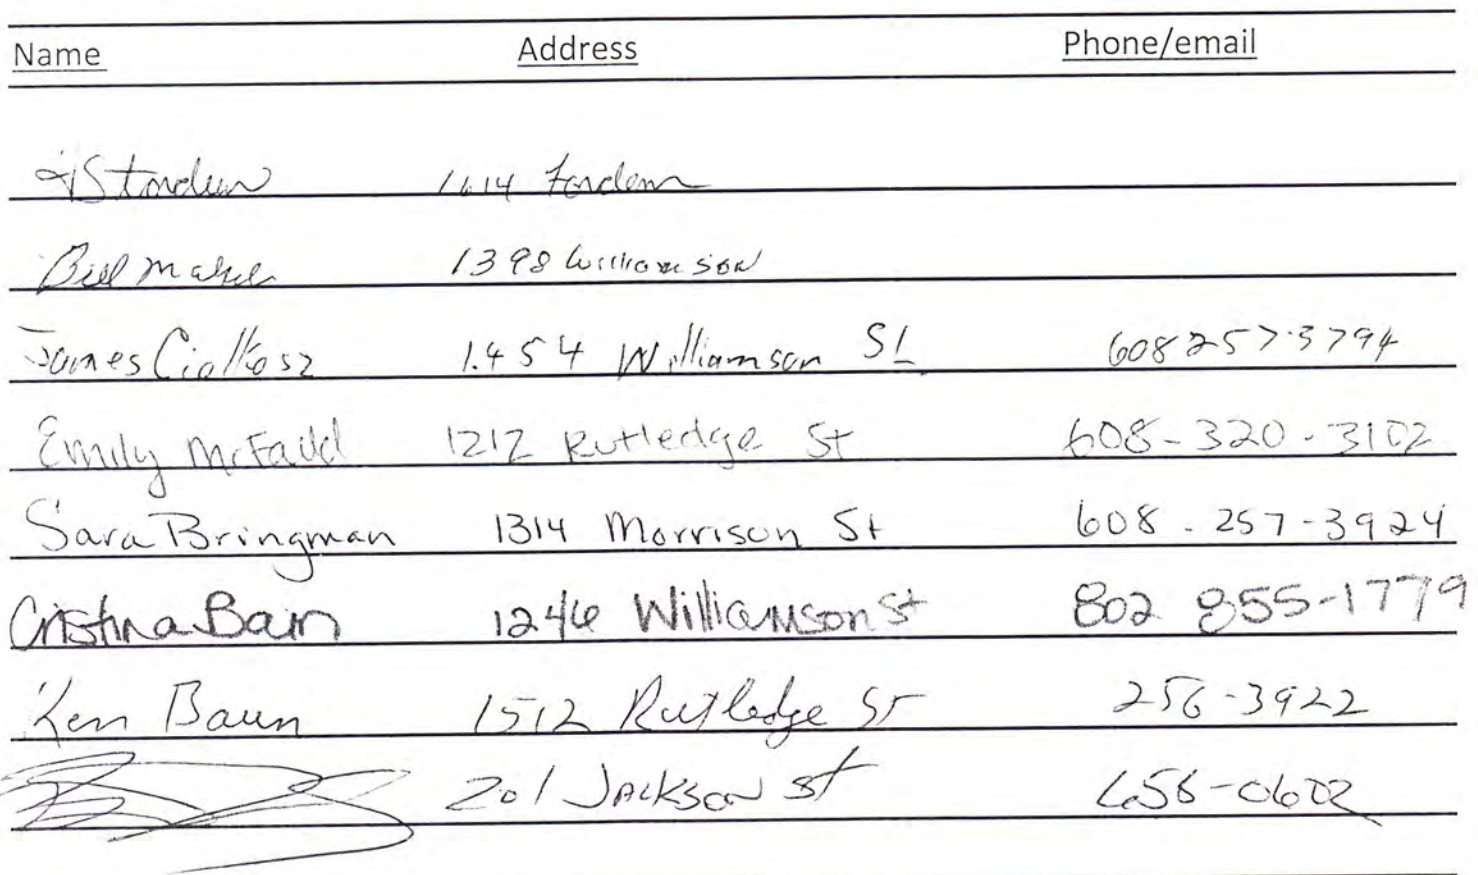 Name Address Phone/email
1614 Fordem
Bill 1398 Williamson
James Cialkosz 1454 Williamson St 608 257-3794
Emily McFadd 1212 Rutledge St 608-320-3102
Sara Bringman 1314 Morrison St 608-257-3924
Cristina Bain 1246 Williamson St 802 855-1779
Ken Baun 1512 Rutledge St 256-3922
201 Jackson St 658-0602